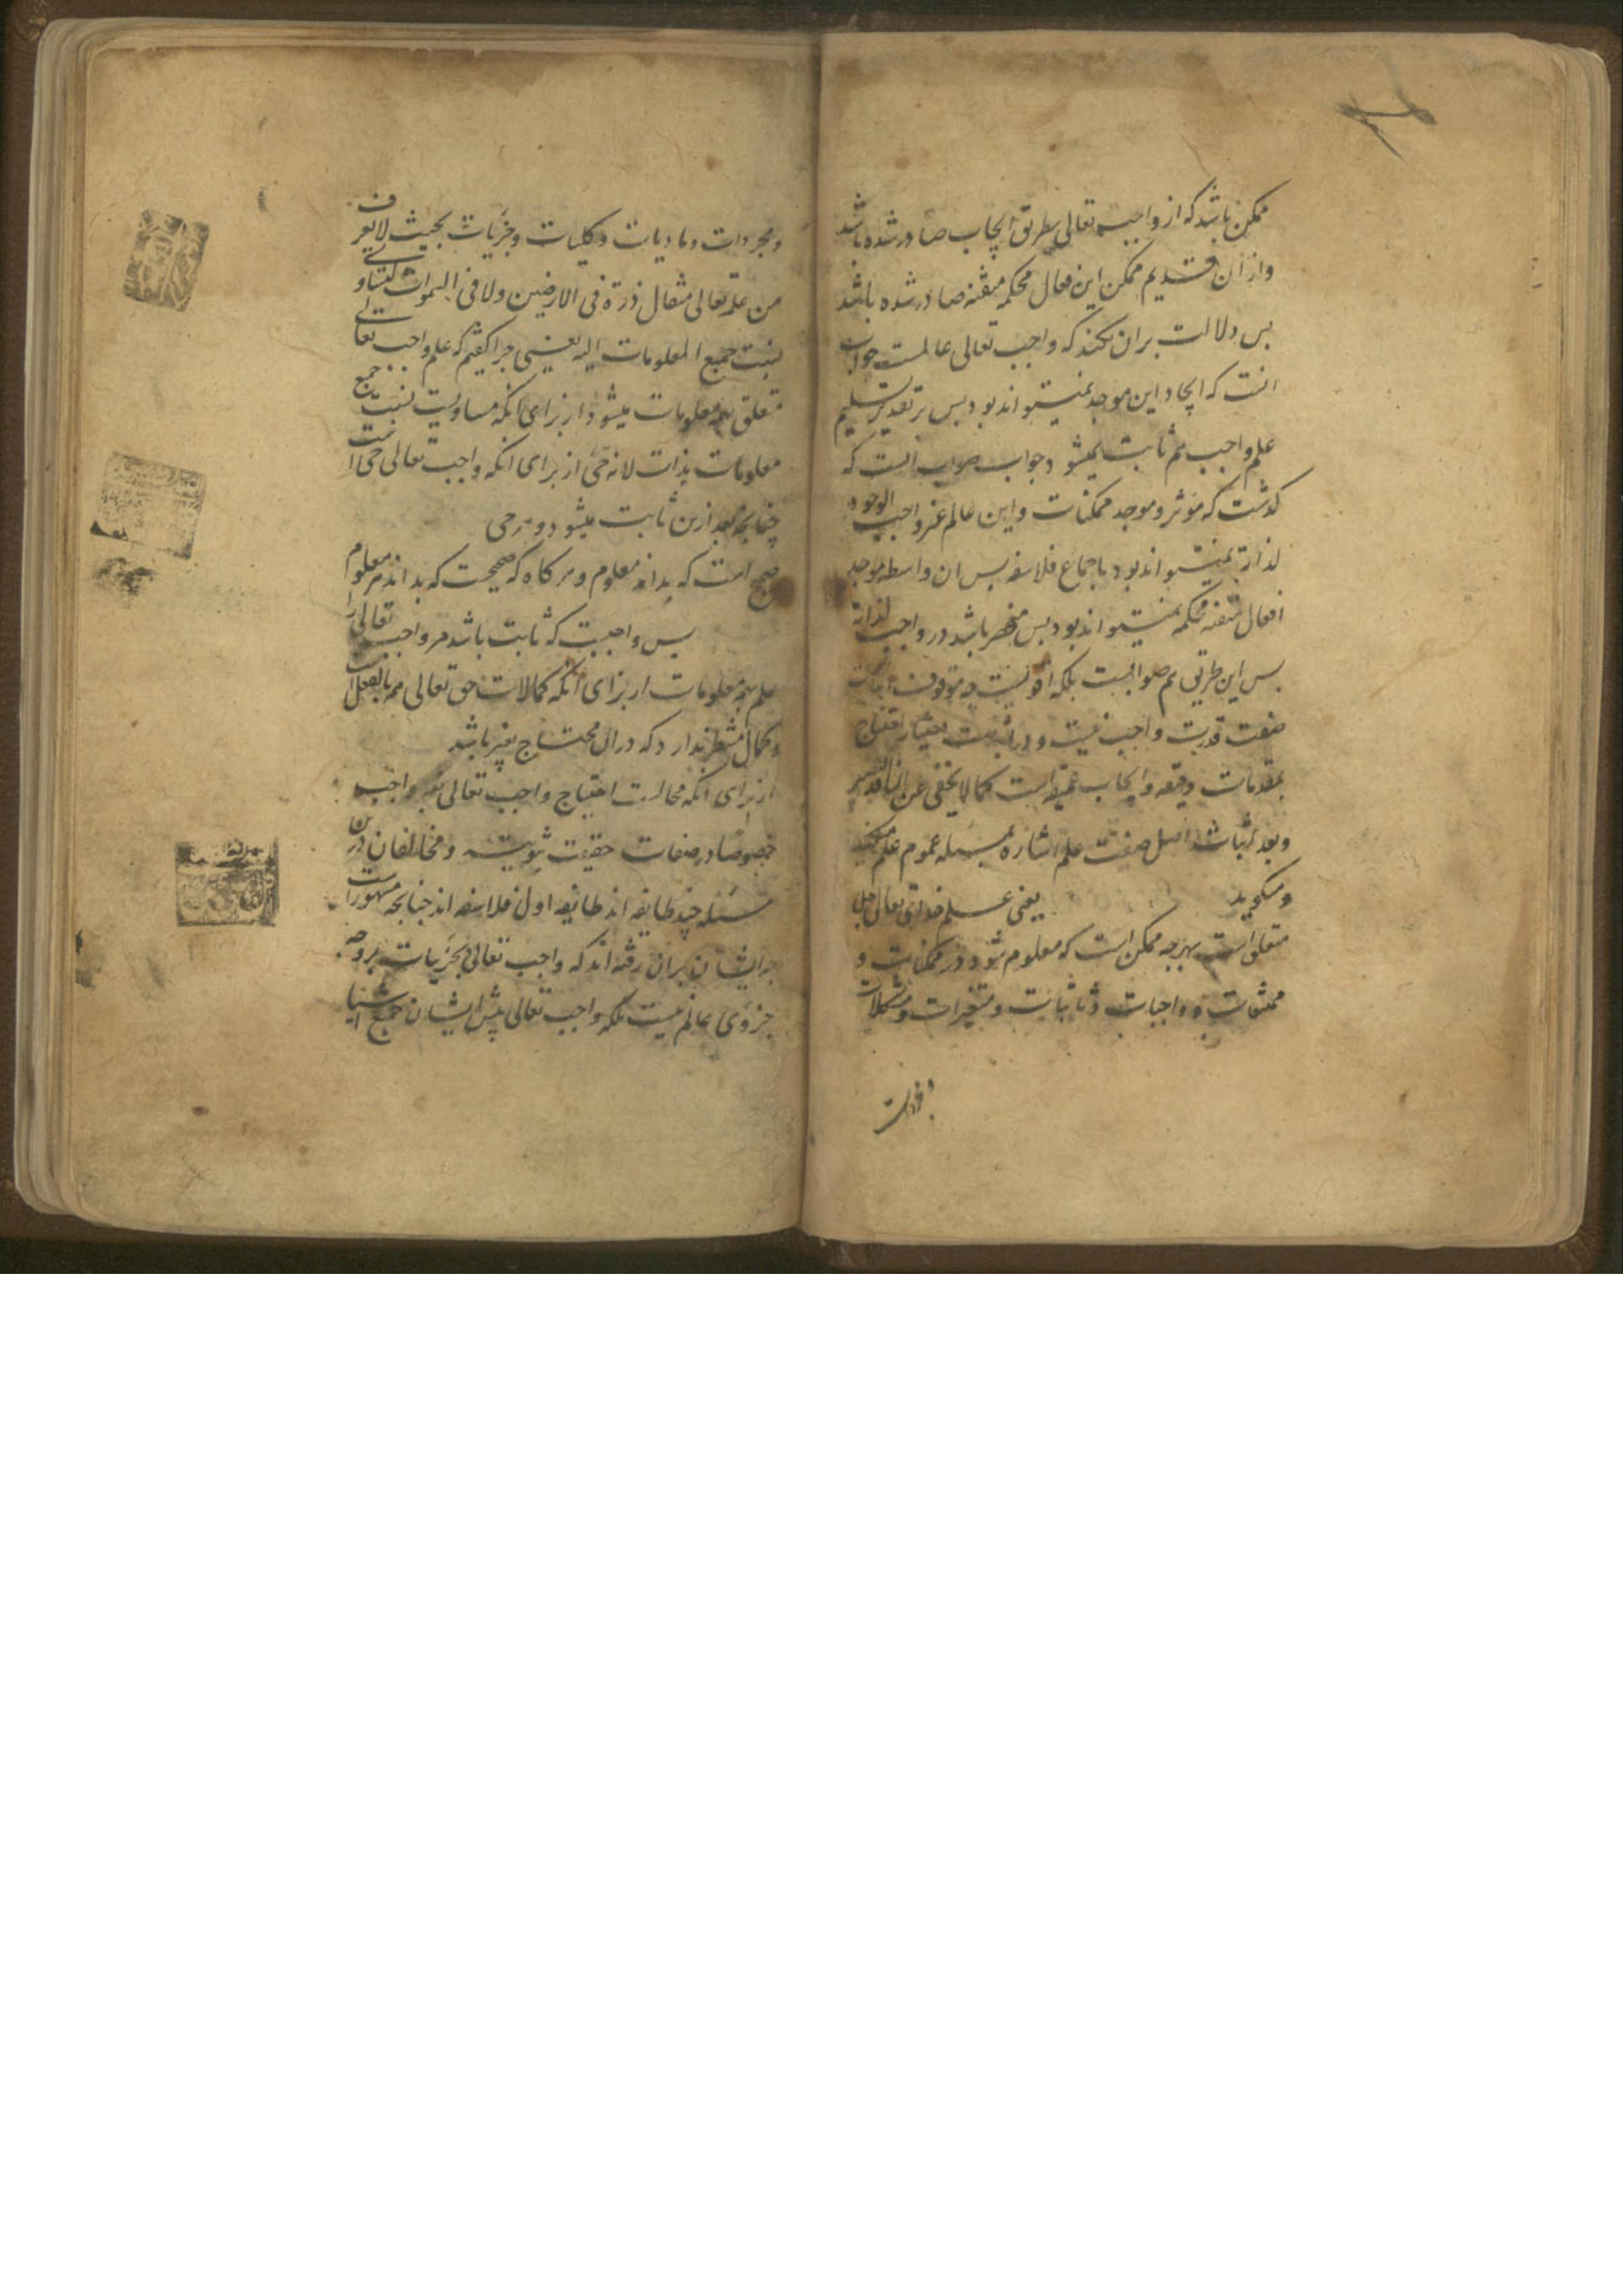 ممکن باشد که از واجب تعالی بطریق ایجاب صادر شده باشد
و از ان قدیم ممکن این فعال محکمه متقنه صادر شده باشد
پس دلالت بران نکند که واجب تعالی عالمست جواب
انست که ایجاد این موجد نمیتواند بود پس بر تقدیر تسلیم
علم واجب هم ثابت نمیشود و جواب صواب انست که
گذشت که مؤثر و موجد ممکنات و این عالم غیر واجب الوجود
لذاته نمیتواند بود باجماع فلاسفه پس ان واسطه موجد
افعال متقنه محکمه نمیتواند بود پس منحصر باشد در واجب لذاته
پس این طریق هم صوابست بلکه اقویست چه موقوف اثبات
صفت قدرت واجب نیست و در اثبات اختیار احتیاج
بمقدمات دقیقه و ایجاب عمیقه است کما لا یخفی عن الناقد البصیر
و بعد اثبات اصل صفت علم اشاره بمسئله عموم علم میکند
و میگوید یعنی علم خدای تعالی
متعلق است بهرچه ممکن است که معلوم شود در ممکنات و
ممتنعات و واجبات و ثابتات و متغیرات و مشکلات
و مجردات و مادیات و کلیات و جزیات بحیث لا یعزف
من علمه تعالی مثقال ذرة فی الارضین ولا فی السموات لتساوی
نسبت جمیع المعلومات الیه یعنی چرا گفتیم که علم واجب تعالی
متعلق بهمه معلومات میشود از برای انکه مساویست نسبت جمیع
معلومات بذات لانه حی از برای انکه واجب تعالی حی است
چنانچه بعد ازین ثابت میشود و هر حی
صحیح است که بداند معلوم و هر گاه که صحیحست که بداند هر معلوم را
پس واجبست که ثابت باشد مر واجب تعالی را
علم بهمه معلومات از برای انکه کمالات حق تعالی همه بالفعل است
و کمال منتظر ندارد که در ان محتاج بغیر باشد
از برای انکه محالست احتیاج واجب تعالی بغیر واجب
خصوصا در صفات حقیقت ثبوتیه و مخالفان درین
مسئله چند طایفه اند طایفه اول فلاسفه اند چنانچه مشهور است
چه ایشان بران رفته اند که واجب تعالی بجزییات بر وجه
جزوی عالم نیست بلکه واجب تعالی پیش ایشان جمیع اشیا